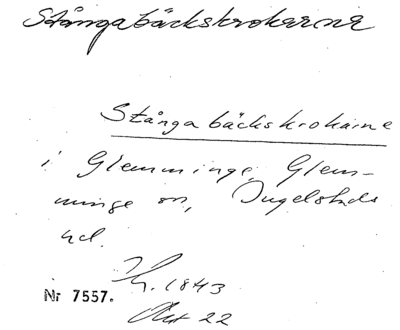 Stångabäckskrokarne
Stångabäckskrokarne
i Glemminge, Glem-
minge sn, Ingelstads
hd.
1843
Nr 7557.
Akt 22